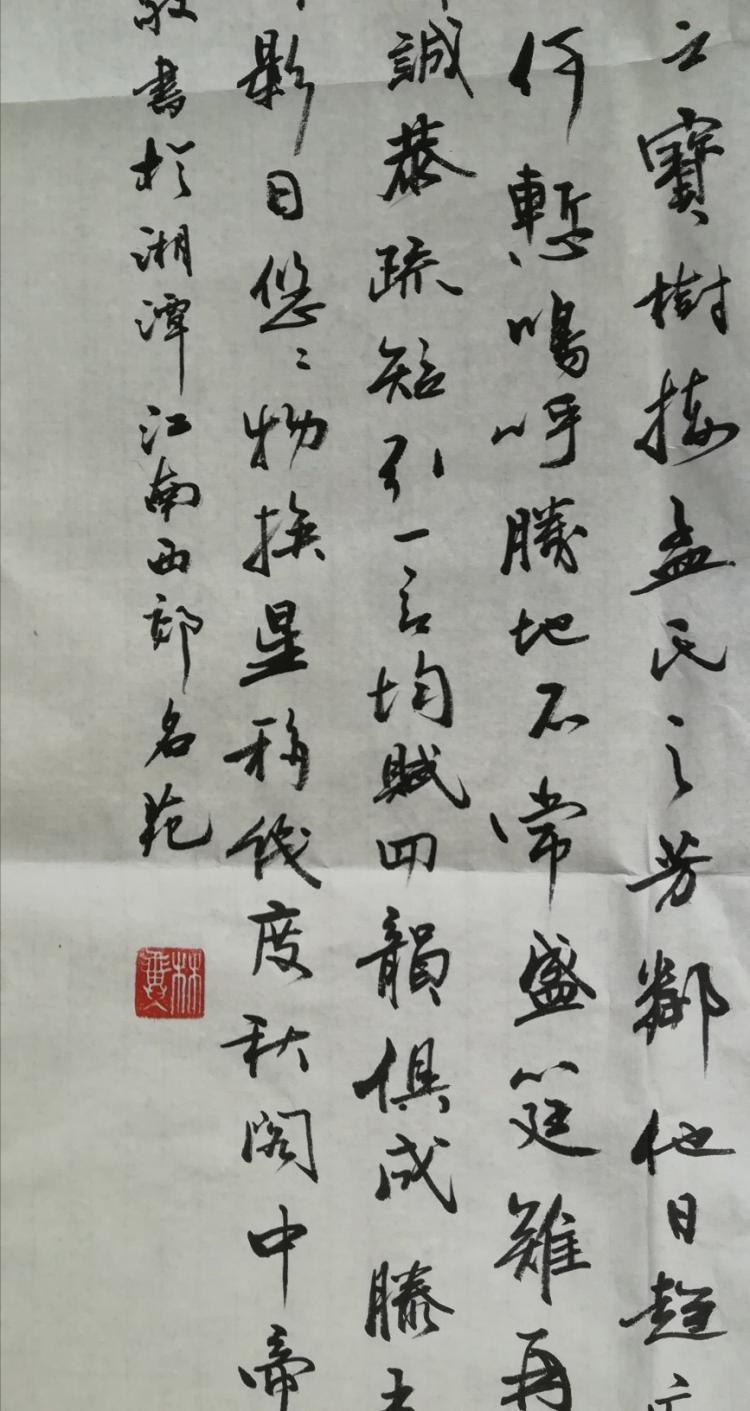 之寶樹接孟氏之芳鄰他日趨
何慙嗚呼勝地不常盛筵難再
誠恭疏短引一言均賦四韻俱成滕
影日悠〻物換星移幾度秋閣中帝
書於湘潭江南西郊名苑
林